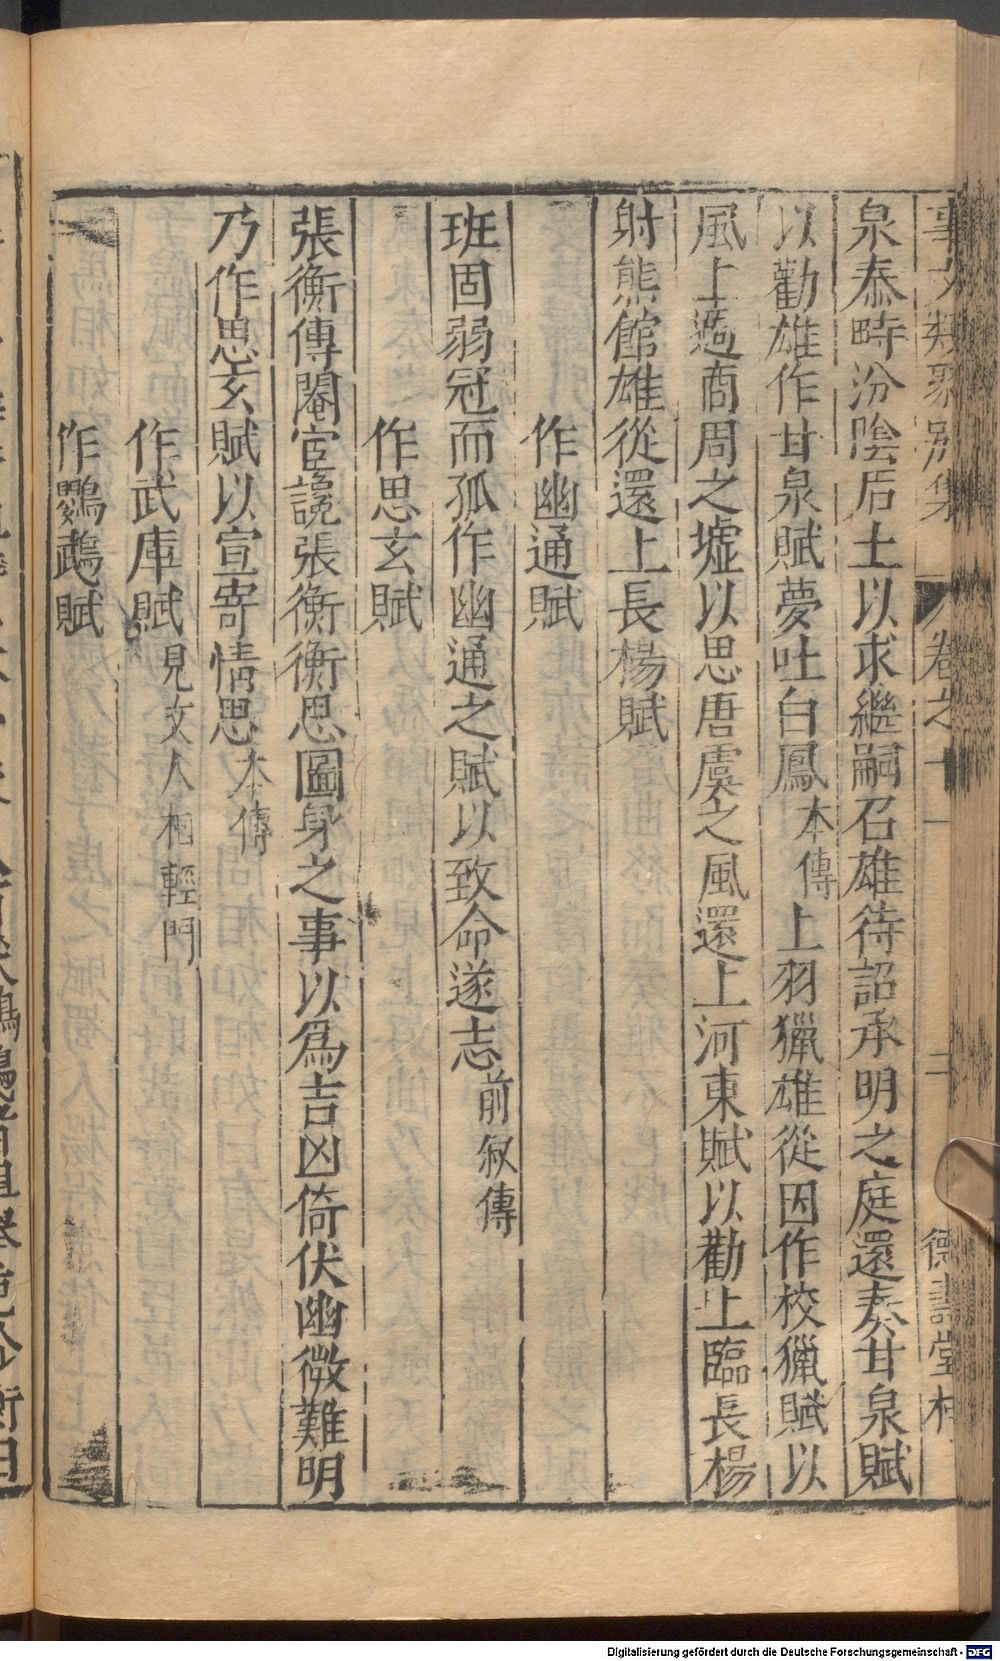 事文類聚別集 卷之十一 二 德壽堂梓
泉泰畤汾陰后土以求繼嗣召雄待詔承明之庭還奏甘泉賦
以勸雄作甘泉賦夢吐白鳳本傳上羽獵雄從因作校獵賦以
風上過商周之墟以思唐虞之風還上河東賦以勸上臨長楊
射熊館雄從還上長楊賦
作幽通賦
班固弱冠而孤作幽通之賦以致命遂志前叙傳
作思玄賦
張衡傳閹宦讒張衡衡思圖身之事以爲吉凶倚伏幽微難明
乃作思玄賦以宣寄情思本傳
作武庫賦見文人相輕門
作鸚鵡賦
Digitalisierung gefördert durch die Deutsche Forschungsgemeinschaft - DFG